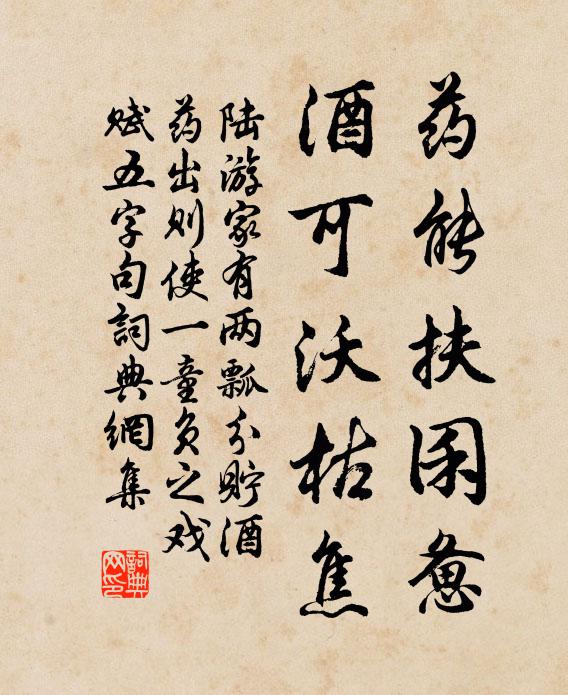 药能扶困惫
酒可沃枯焦
陆游家有两瓢分贮酒
药出则使一童负之戏
赋五字句詞典網集
詞典
网印